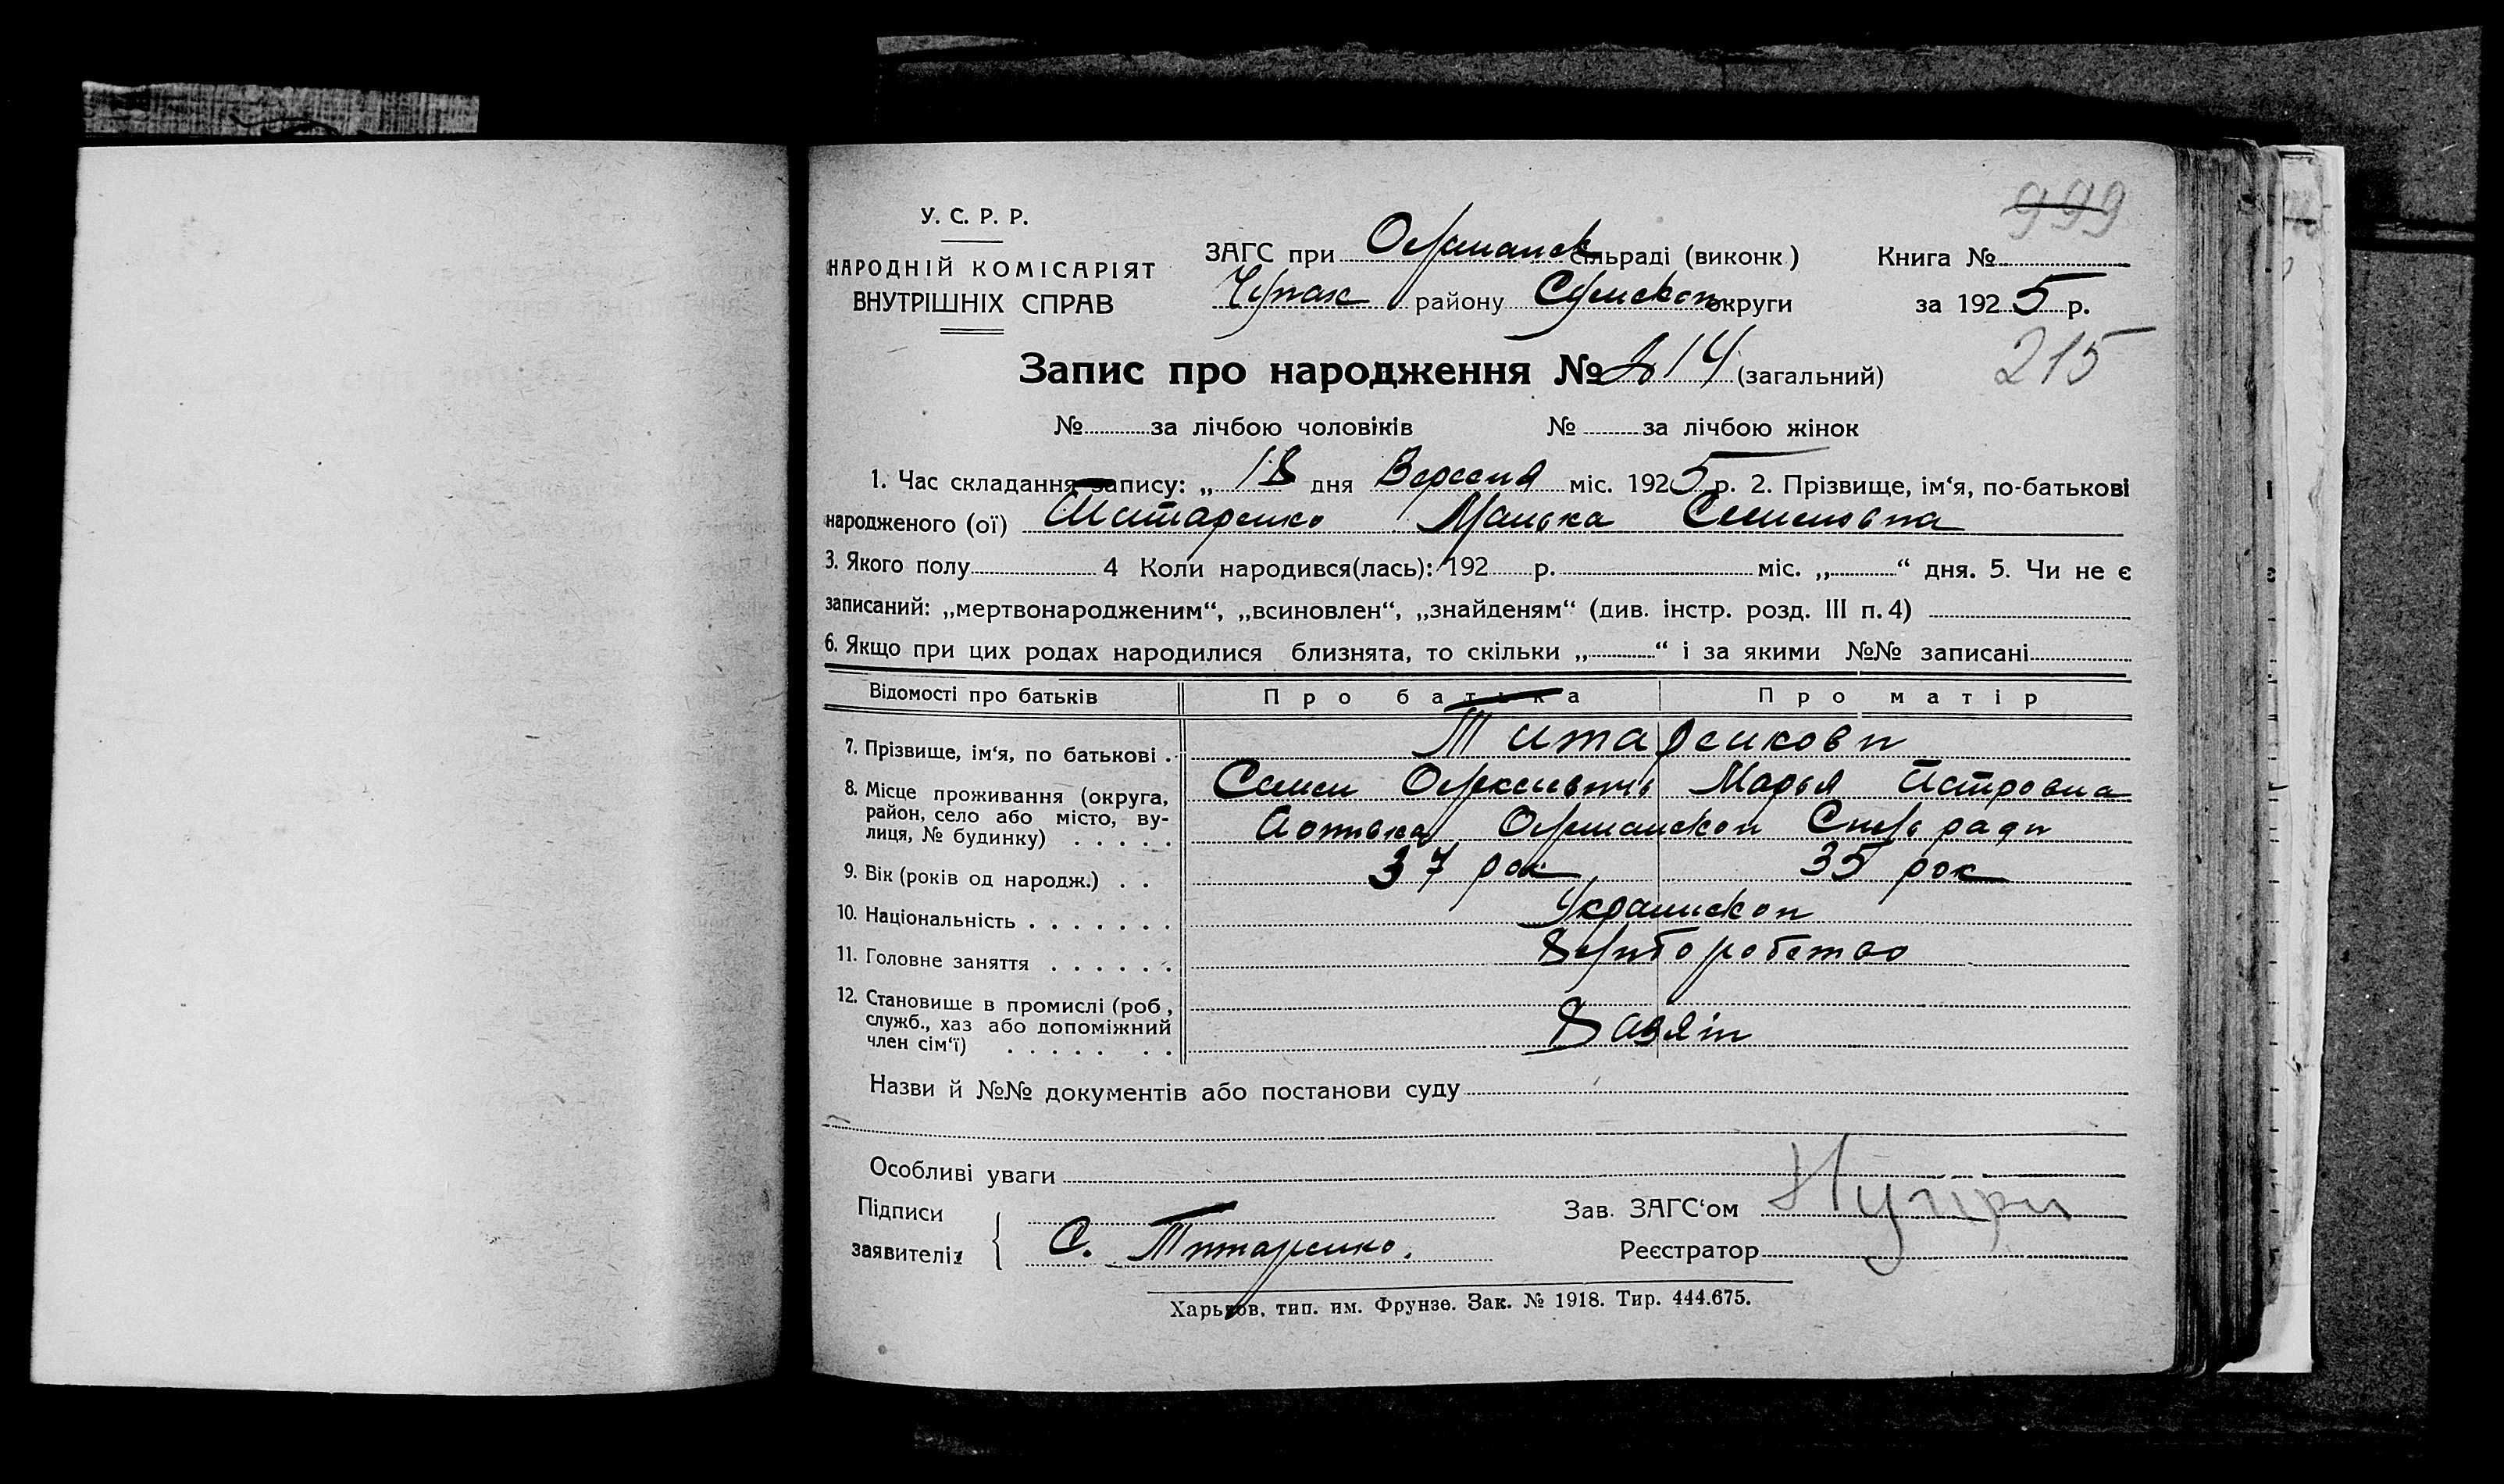 999
У. С. Р. Р.
НАРОДНІЙ КОМІСАРІЯТ
ВНУТРІШНІХ СПРАВ
ЗАГС при сільраді (виконк)
Чупах району Сумской округи
Книга №
за 1925 р.
215
Запис про народження № 214 (загальний)
№ за лічбою чоловіків № за лічбою жінок
1. Час складання запису: „ 18 дня Вересня міс. 1925 р. 2. Прізвище, ім‘я, по-батькові
народженого (ої) Титаренко Семеновна
3. Якого полу 4 Коли народився(лась): 192 р. міс. „ “ дня. 5. Чи не є
записаний: „мертвонародженим“, „всиновлен“, „знайденям“ (див. інстр. розд. III п. 4)
6. Якщо при цих родах народилися близнята, то скільки „ “ і за якими №№ записані
Відомості про батьків Про батька Про матір
7. Прізвище, ім‘я, по батькові . Титаренкови
8. Місце проживання (округа, район, село або місто, вулиця, № будинку) . . . . . Семен Марья Петровна
ради
9. Вік (років од народж.) . . 37 рок 35 рок
10. Національність . . . . . . . Украинскоп
11. Головне заняття . . . . . .
12. Становище в промислі (роб, служб., хаз або допоміжний член сім‘ї) . . . . . . . Хазяін
Назви й №№ документів або постанови суду
Особливі уваги
Підписи
заявителів С. Титаренко.
Зав. ЗАГС‘ом
Реєстратор
Харьков, тип. им. Фрунзе. Зак. № 1918. Тир. 444.675.